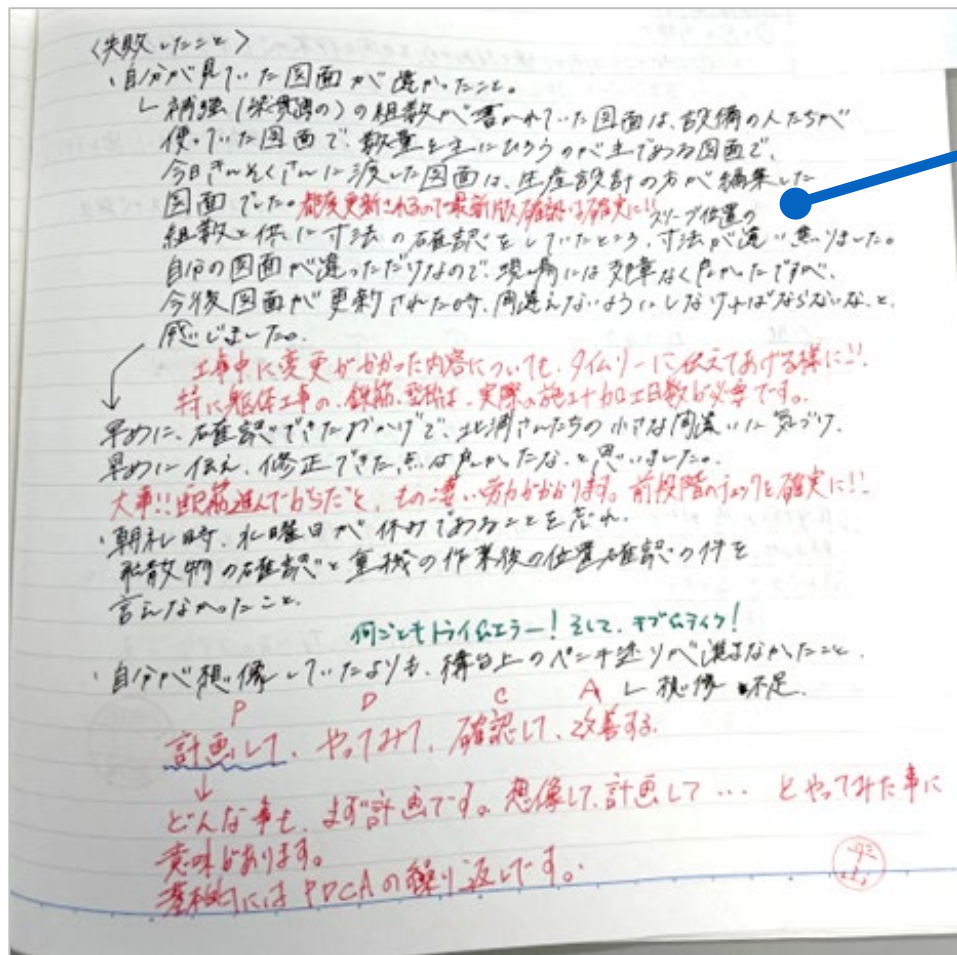 〈失敗したこと〉
・自分が見ていた図面が違かったこと。
└ 補強(梁貫通の)の組数が書かれていた図面は、設備の人たちが
使っていた図面で、数量を主にひろうのが主である図面で、
今日きんそくさんに渡した図面は、生産設計の方が編集した
図面でした。都度更新されるので最新版確認は確実に!!
スリーブ位置の
組数と供に寸法の確認をしていたところ、寸法が違い焦りました。
自分の図面が違っただけなので、現場には支障なく良かったですが、
今後図面が更新された時、間違えないようにしなければならないな、と
感じました。
工事中に変更がかかった内容についても、タイムリーに伝えてあげる様に!!
特に躯体工事の、鉄筋、型枠は、実際の施工+加工日数が必要です。
早めに、確認できたおかげで、北浦さんたちの小さな間違いに気づけ、
早めに伝え、修正できた点は良かったな、と思いました。
大事!!配筋進んでからだと、もの凄い労力がかかります。前段階のチェックを確実に!!
・朝礼時、水曜日が休めであることを忘れ、
飛散物の確認と重機の作業後の位置確認の件を
言えなかったこと。
何ごともトライ&エラー!そして、ポジティブ!
・自分が想像していたよりも、構台上のペンキ塗りが進まなかったこと。
└ 想像 不足。
P D C A
計画して、やってみて、確認して、改善する。
↓
どんな事も、まず計画です。想像して、計画して… とやってみた事に
意味があります。
基本的にはPDCAの繰り返しです。